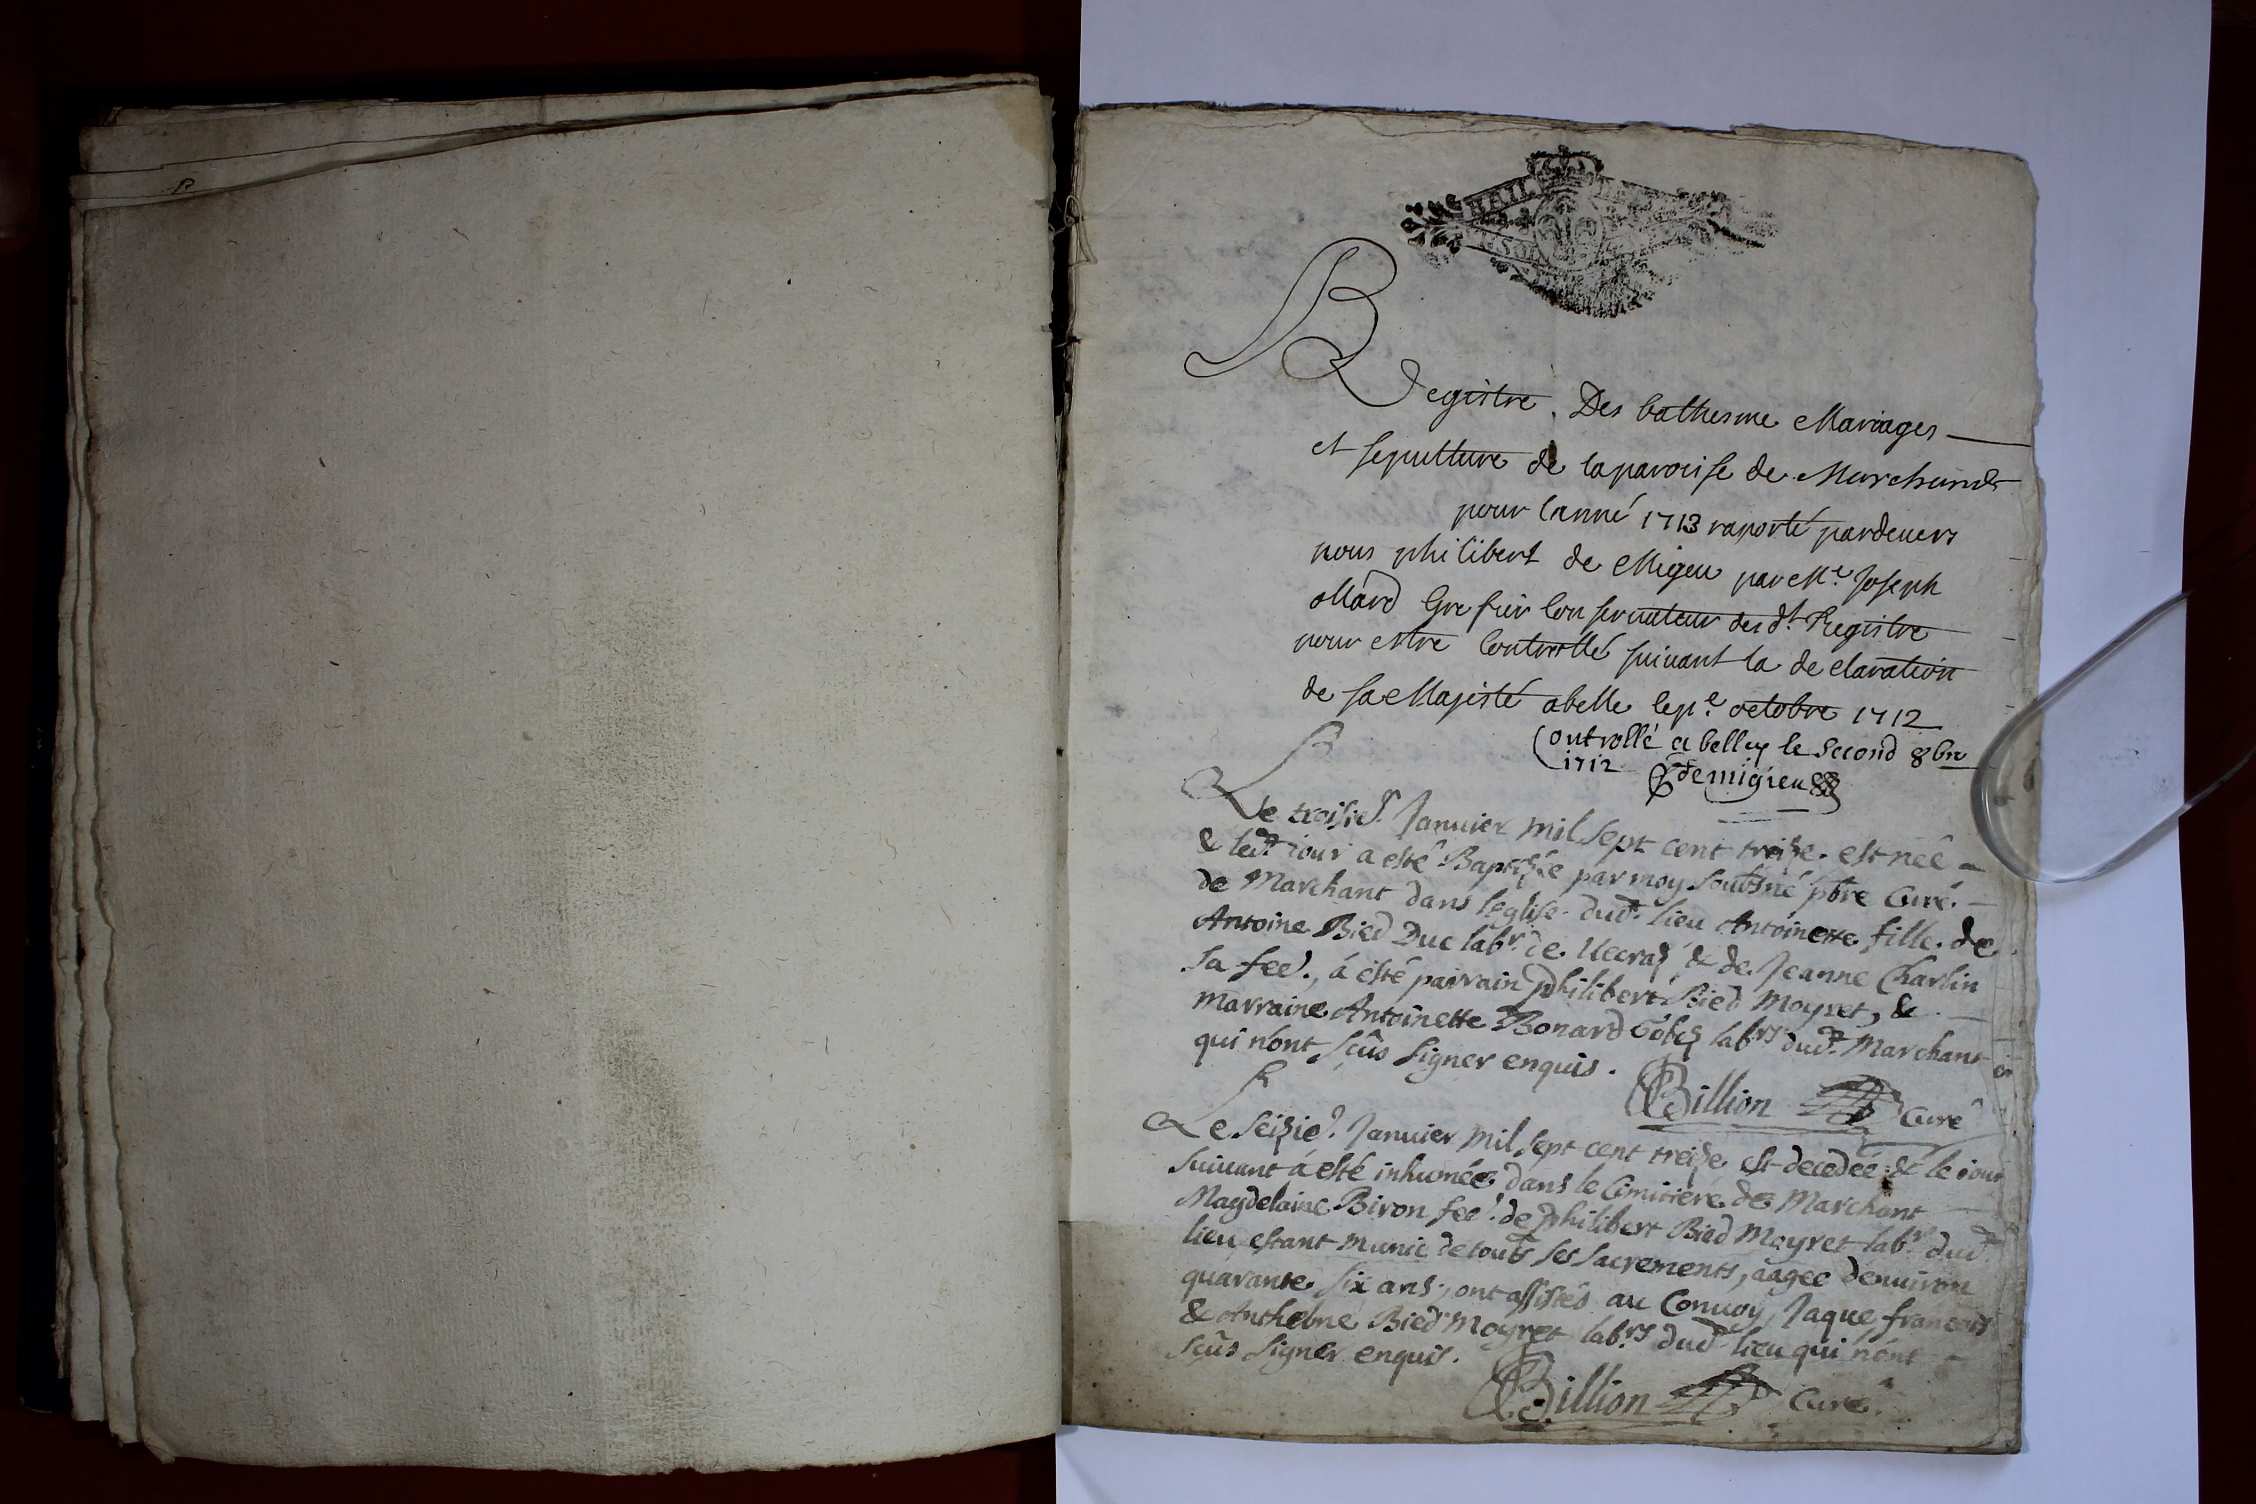 Registre Des bathesme Mariages
et sepulture de la paroisse de Marchand
pour lanné 1713 raporté pardevers
nous philibert de Migieu par Me. Joseph
Mard Grefier Conservateur des dt. Registre
pour estre Controllé suivant la declaration
de sa Majesté a belle le pe. octobre 1712
Controllé a belley le second 8bre
1712 demigieu
Le troisie. Janvier mil sept cent treize est née
& led. jour a esté Baptisée par moy soubsné ptre Curé
de Marchant dans leglise dud. lieu Antoinette fille de
Antoine Bied Duc labr. de & de Jeanne Charlin
sa fee., á esté parrain philibert Bied Moyret, &
marraine Antoinette Bonard labrs. dud. Marchant
qui n'ont sçûs signer enquis.
Billion Curé
Le seizie. Janvier mil sept cent treize est decedée & le jour
suivant á esté inhumée dans le Cimitiere de Marchant
Magdelaine Biron fee. de philibert Bied Moyret labr. dud.
lieu estant munie de touts ses sacrements, aagee denviron
quarante six ans, ont assistés au Convoy Jaque francois
& Anthelme Bied Moyret labrs. dud. lieu qui n'ont
sçûs signer enquis.
Billion Curé